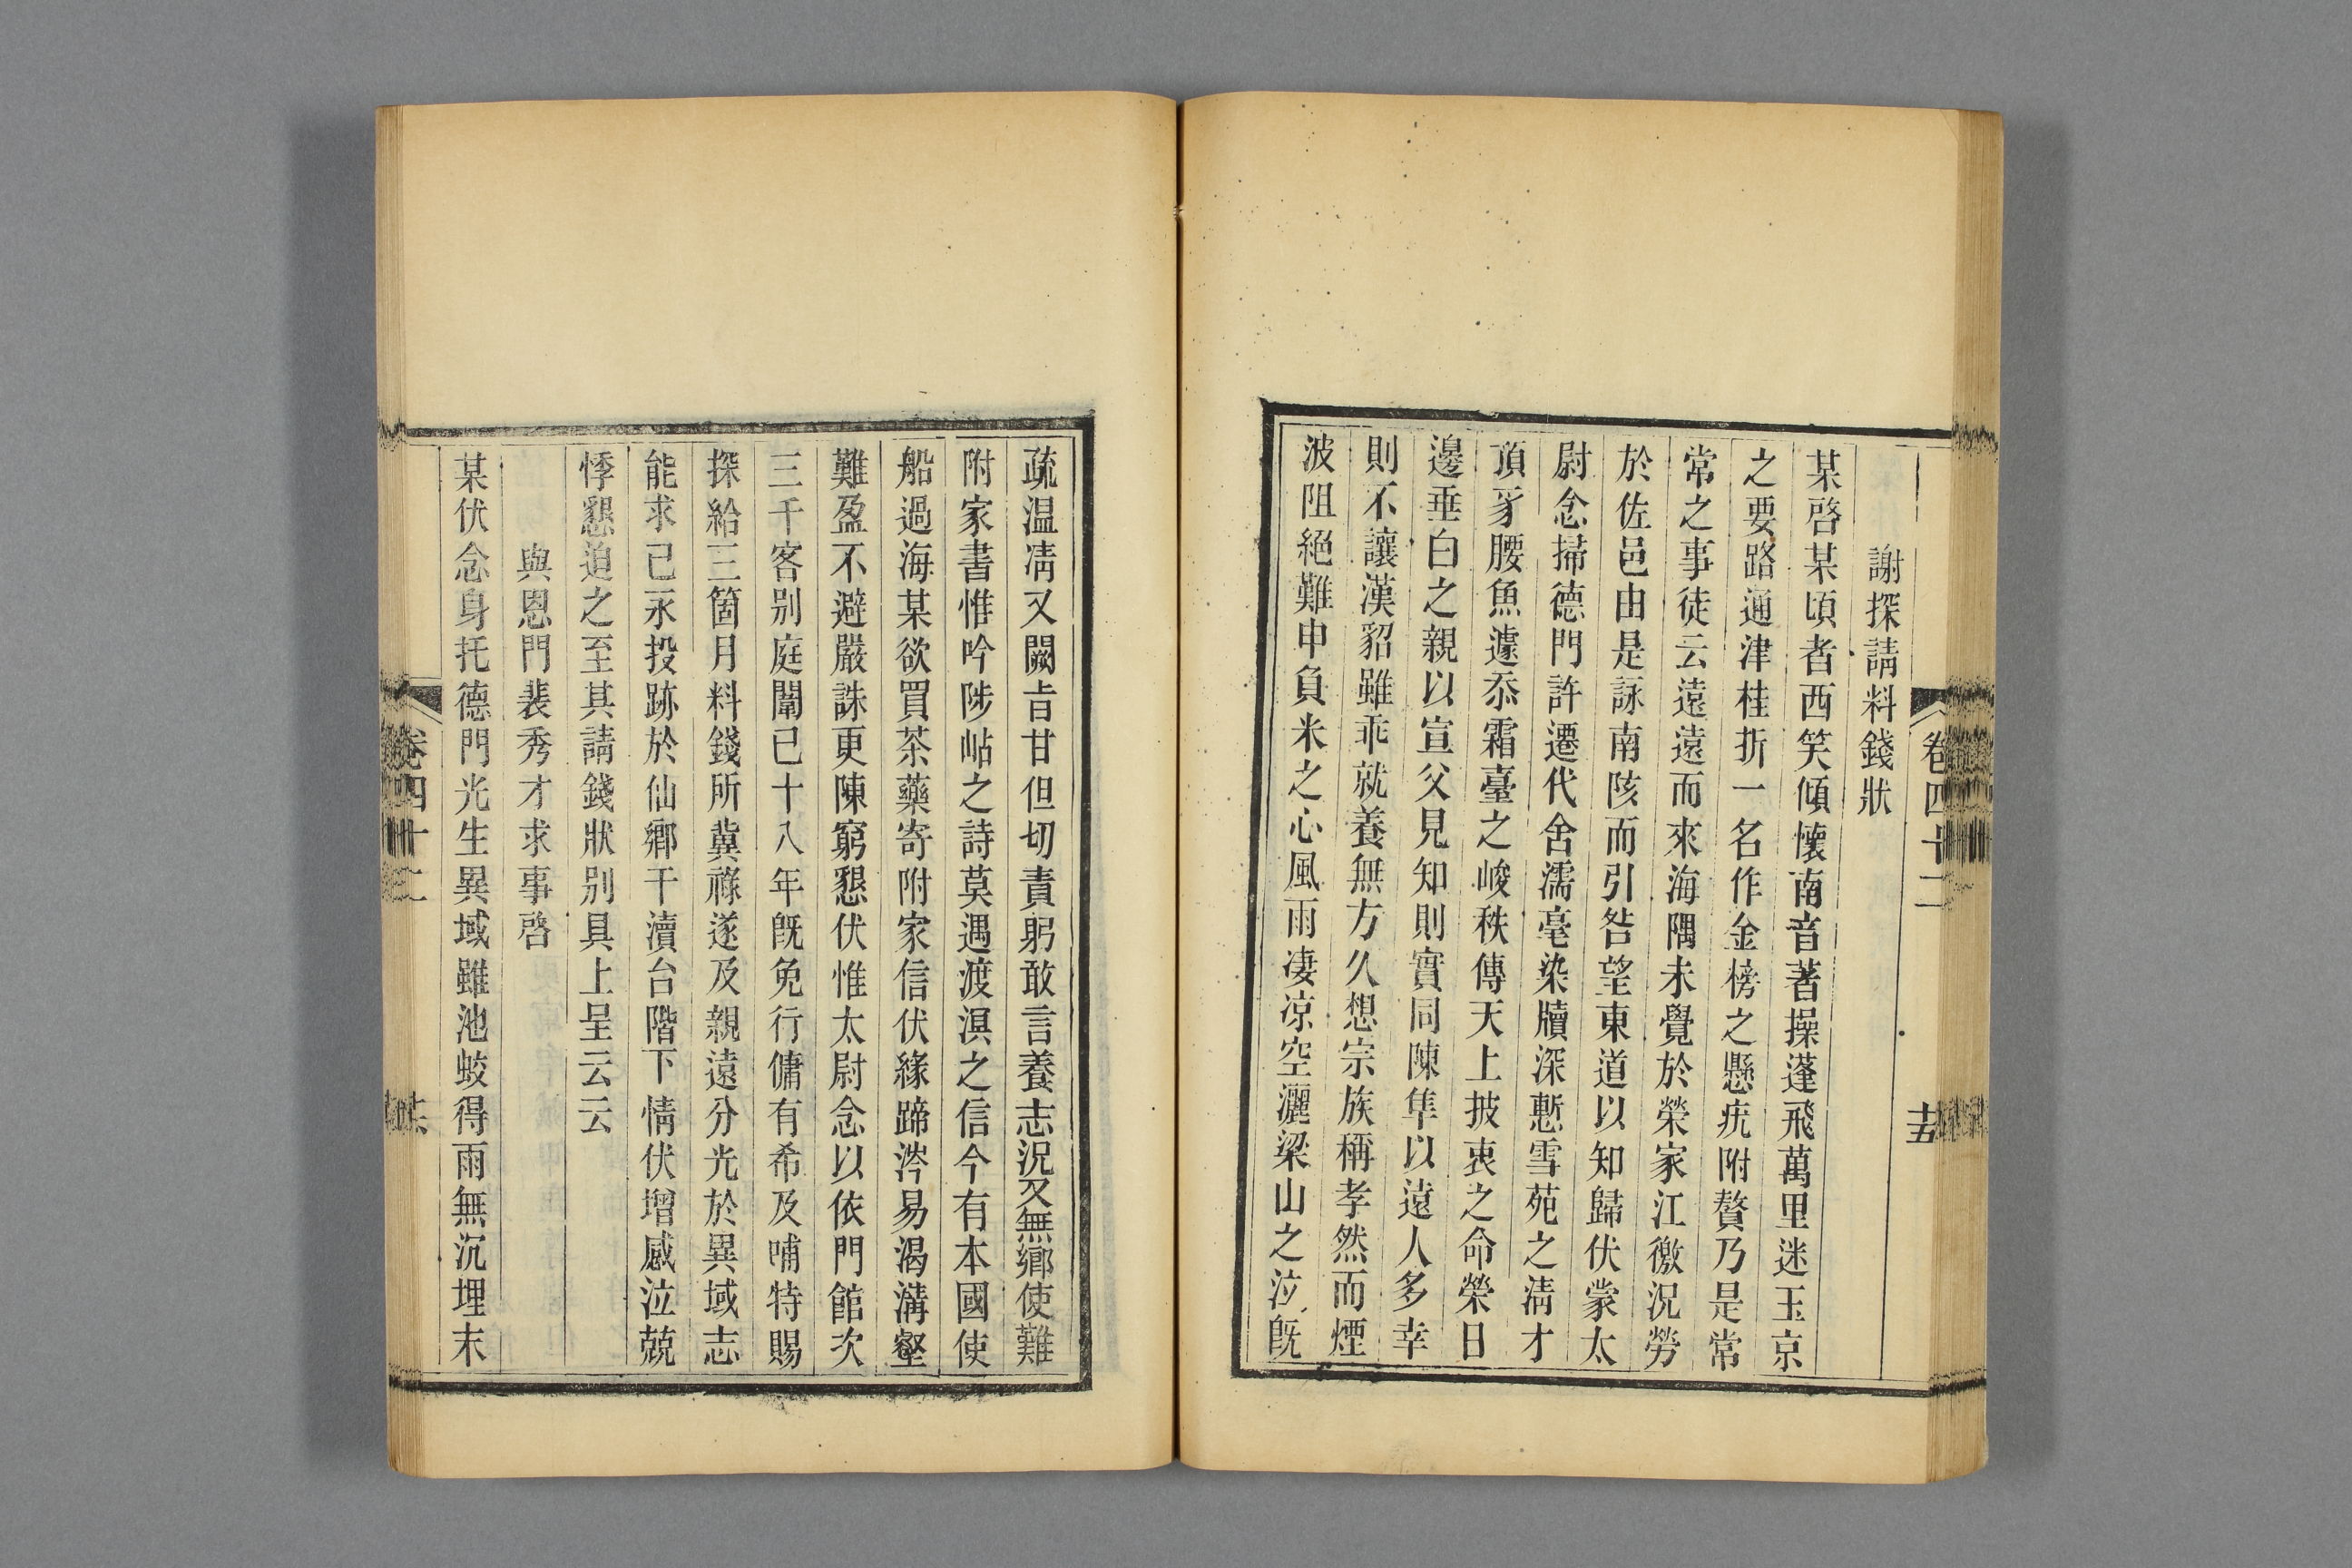 卷四十二
十五
謝探請料錢狀
某啓某頃者西笑傾懷南音著操蓬飛萬里迷玉京
之要路通津桂折一名作金榜之懸疣附贅乃是常
常之事徒云遠遠而來海隅未覺於榮家江徼況勞
於佐邑由是詠南陔而引咎望東道以知歸伏蒙太
尉念掃德門許遷代舍濡毫染牘深慙雪苑之淸才
頂豸腰魚遽忝霜臺之峻秩傳天上披衷之命榮日
邊垂白之親以宣父見知則實同陳隼以遠人多幸
則不讓漢貂雖乖就養無方久想宗族稱孝然而煙
波阻絕難申負米之心風雨凄凉空灑梁山之泣旣
疏温凊又闕旨甘但切責躬敢言養志況又無鄉使難
附家書惟吟陟岵之詩莫遇渡溟之信今有本國使
船過海某欲買茶藥寄附家信伏緣蹄涔易渴溝壑
難盈不避嚴誅更陳窮懇伏惟太尉念以依門館次
三千客別庭闈已十八年旣免行傭有希及哺特賜
探給三箇月料錢所冀祿遂及親遠分光於異域志
能求己永投跡於仙鄉干瀆台階下情伏增感泣兢
悸懇迫之至其請錢狀別具上呈云云
與恩門裴秀才求事啓
某伏念身托德門光生異域雖池蛟得雨無沉埋末
卷四十二
十六